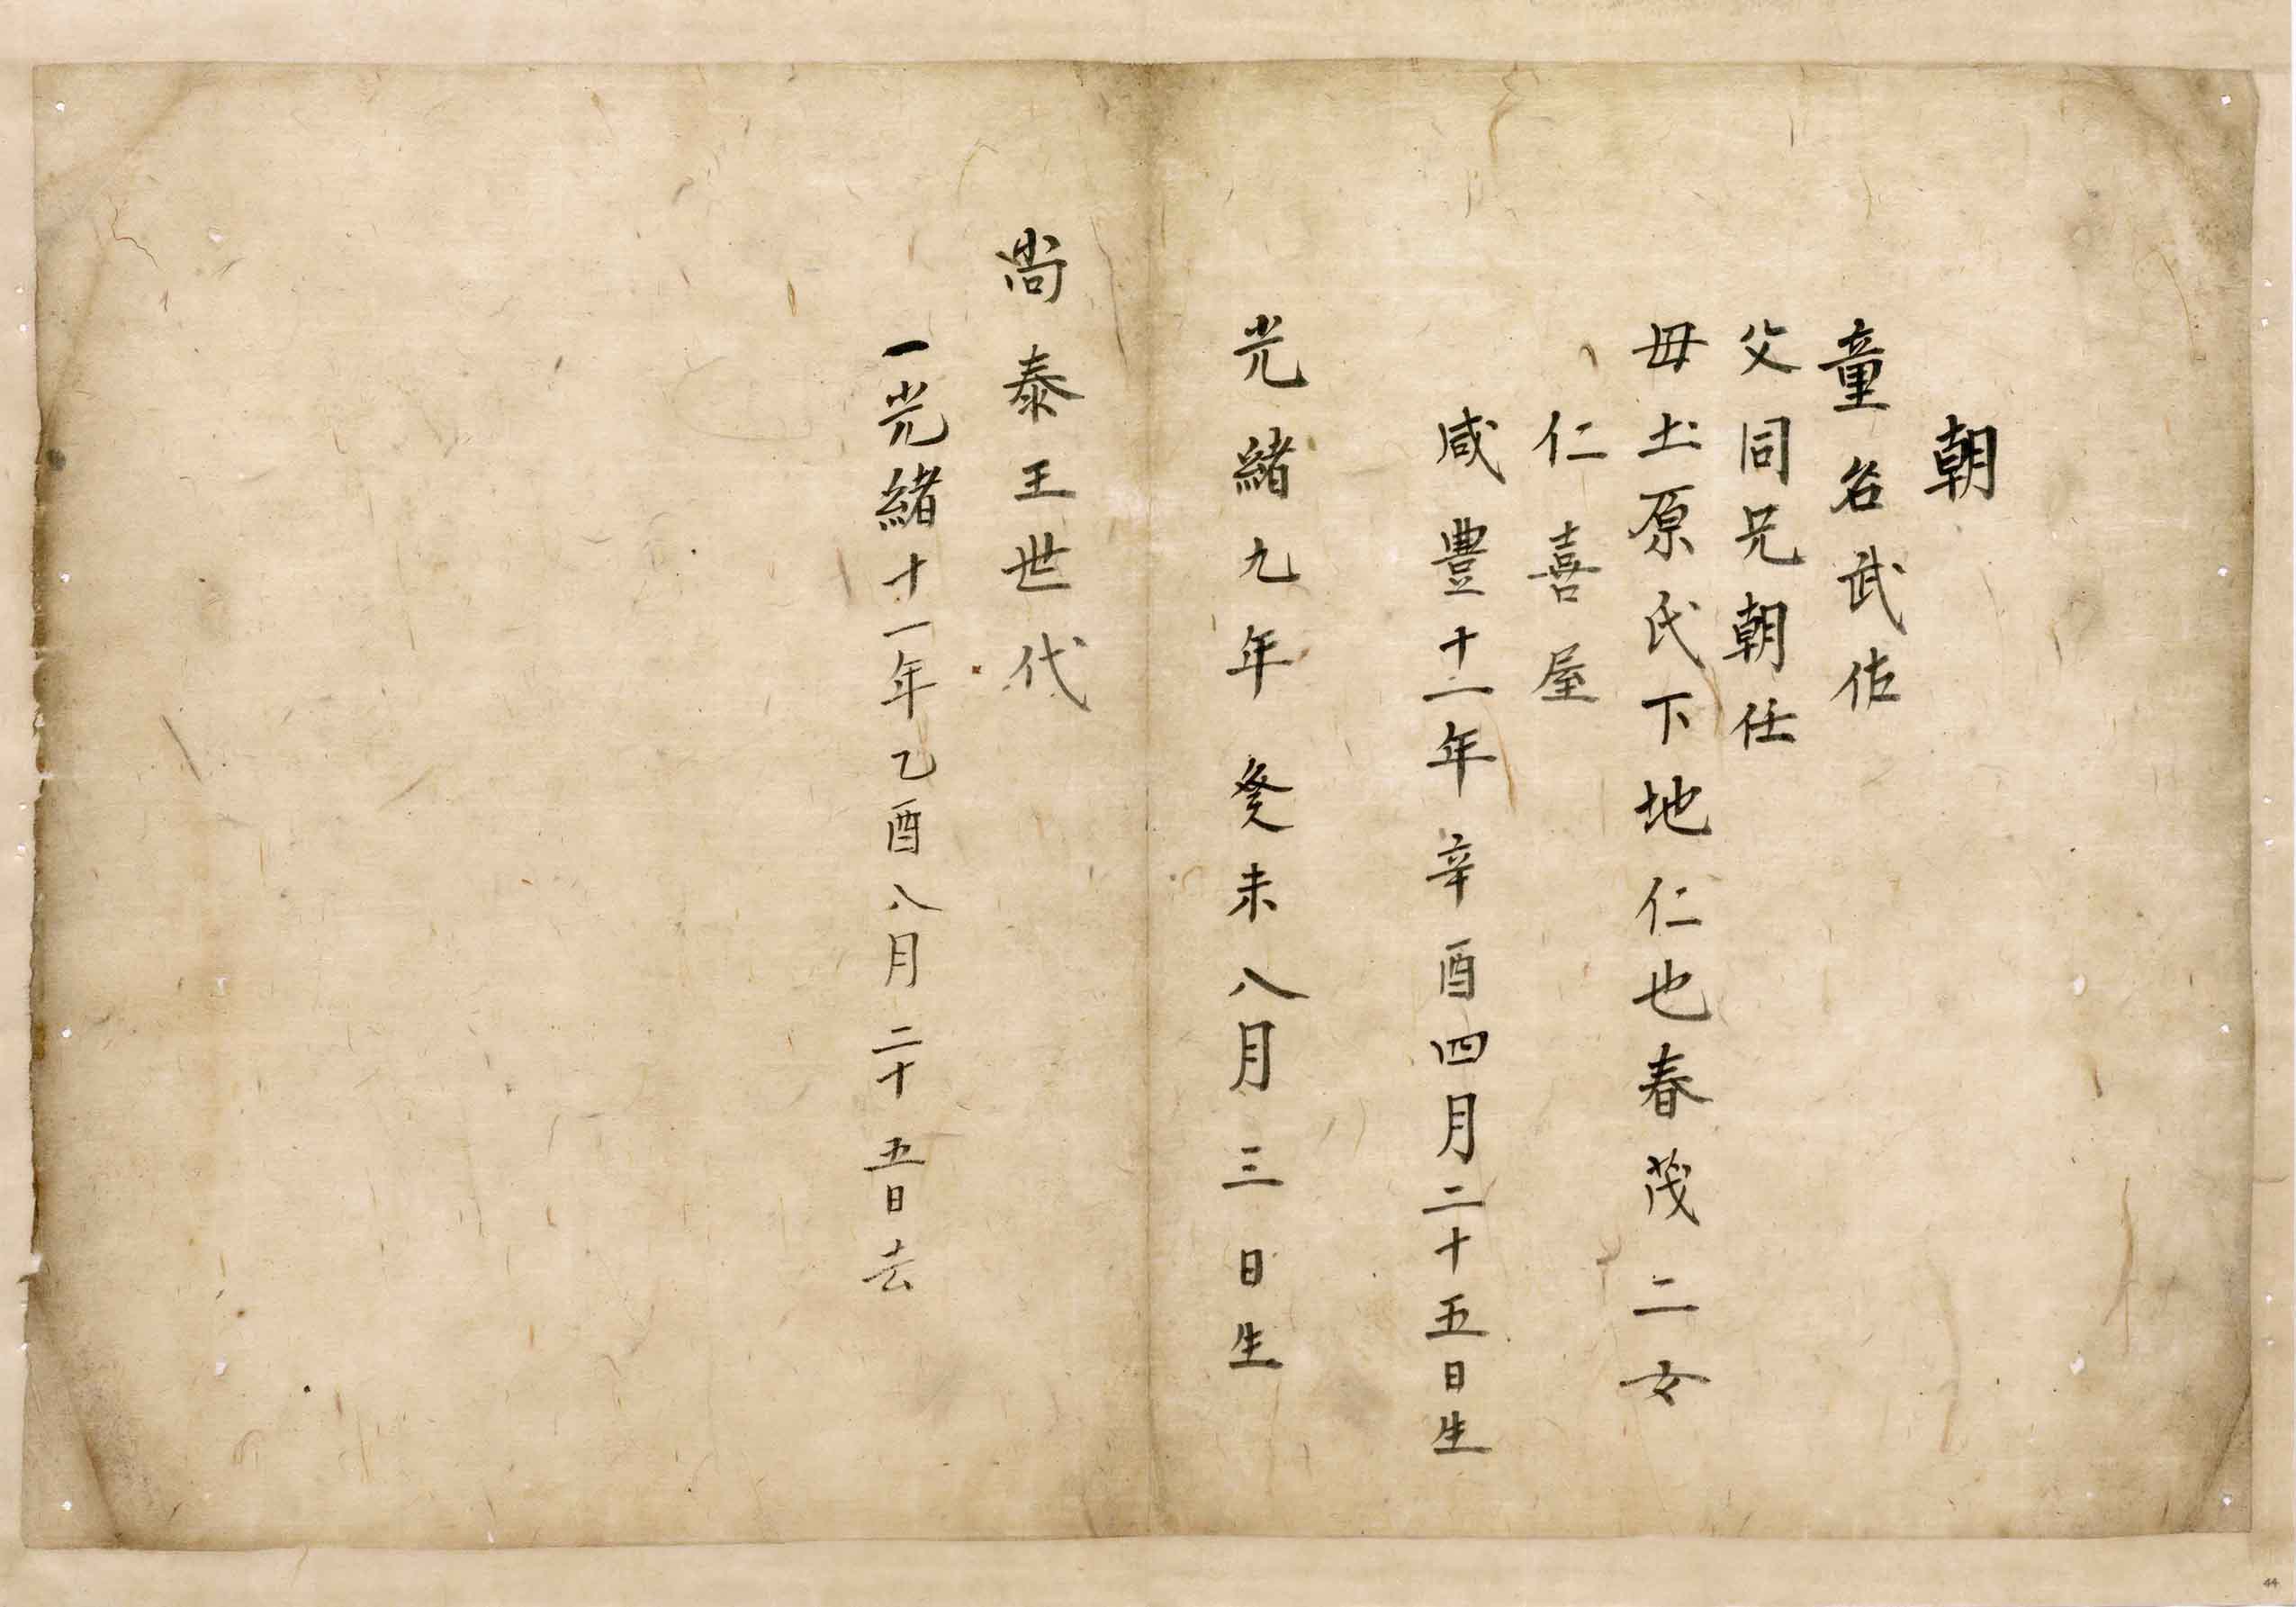 朝
童名武佐
父同兄朝仕
毋土原氏下地仁也春茂二女
仁喜屋
咸豊十一年辛酉四月二十五日生
光緒九年癸未八月三日生
尚泰王世代
一光緒十一年乙酉八月二十五日去
44